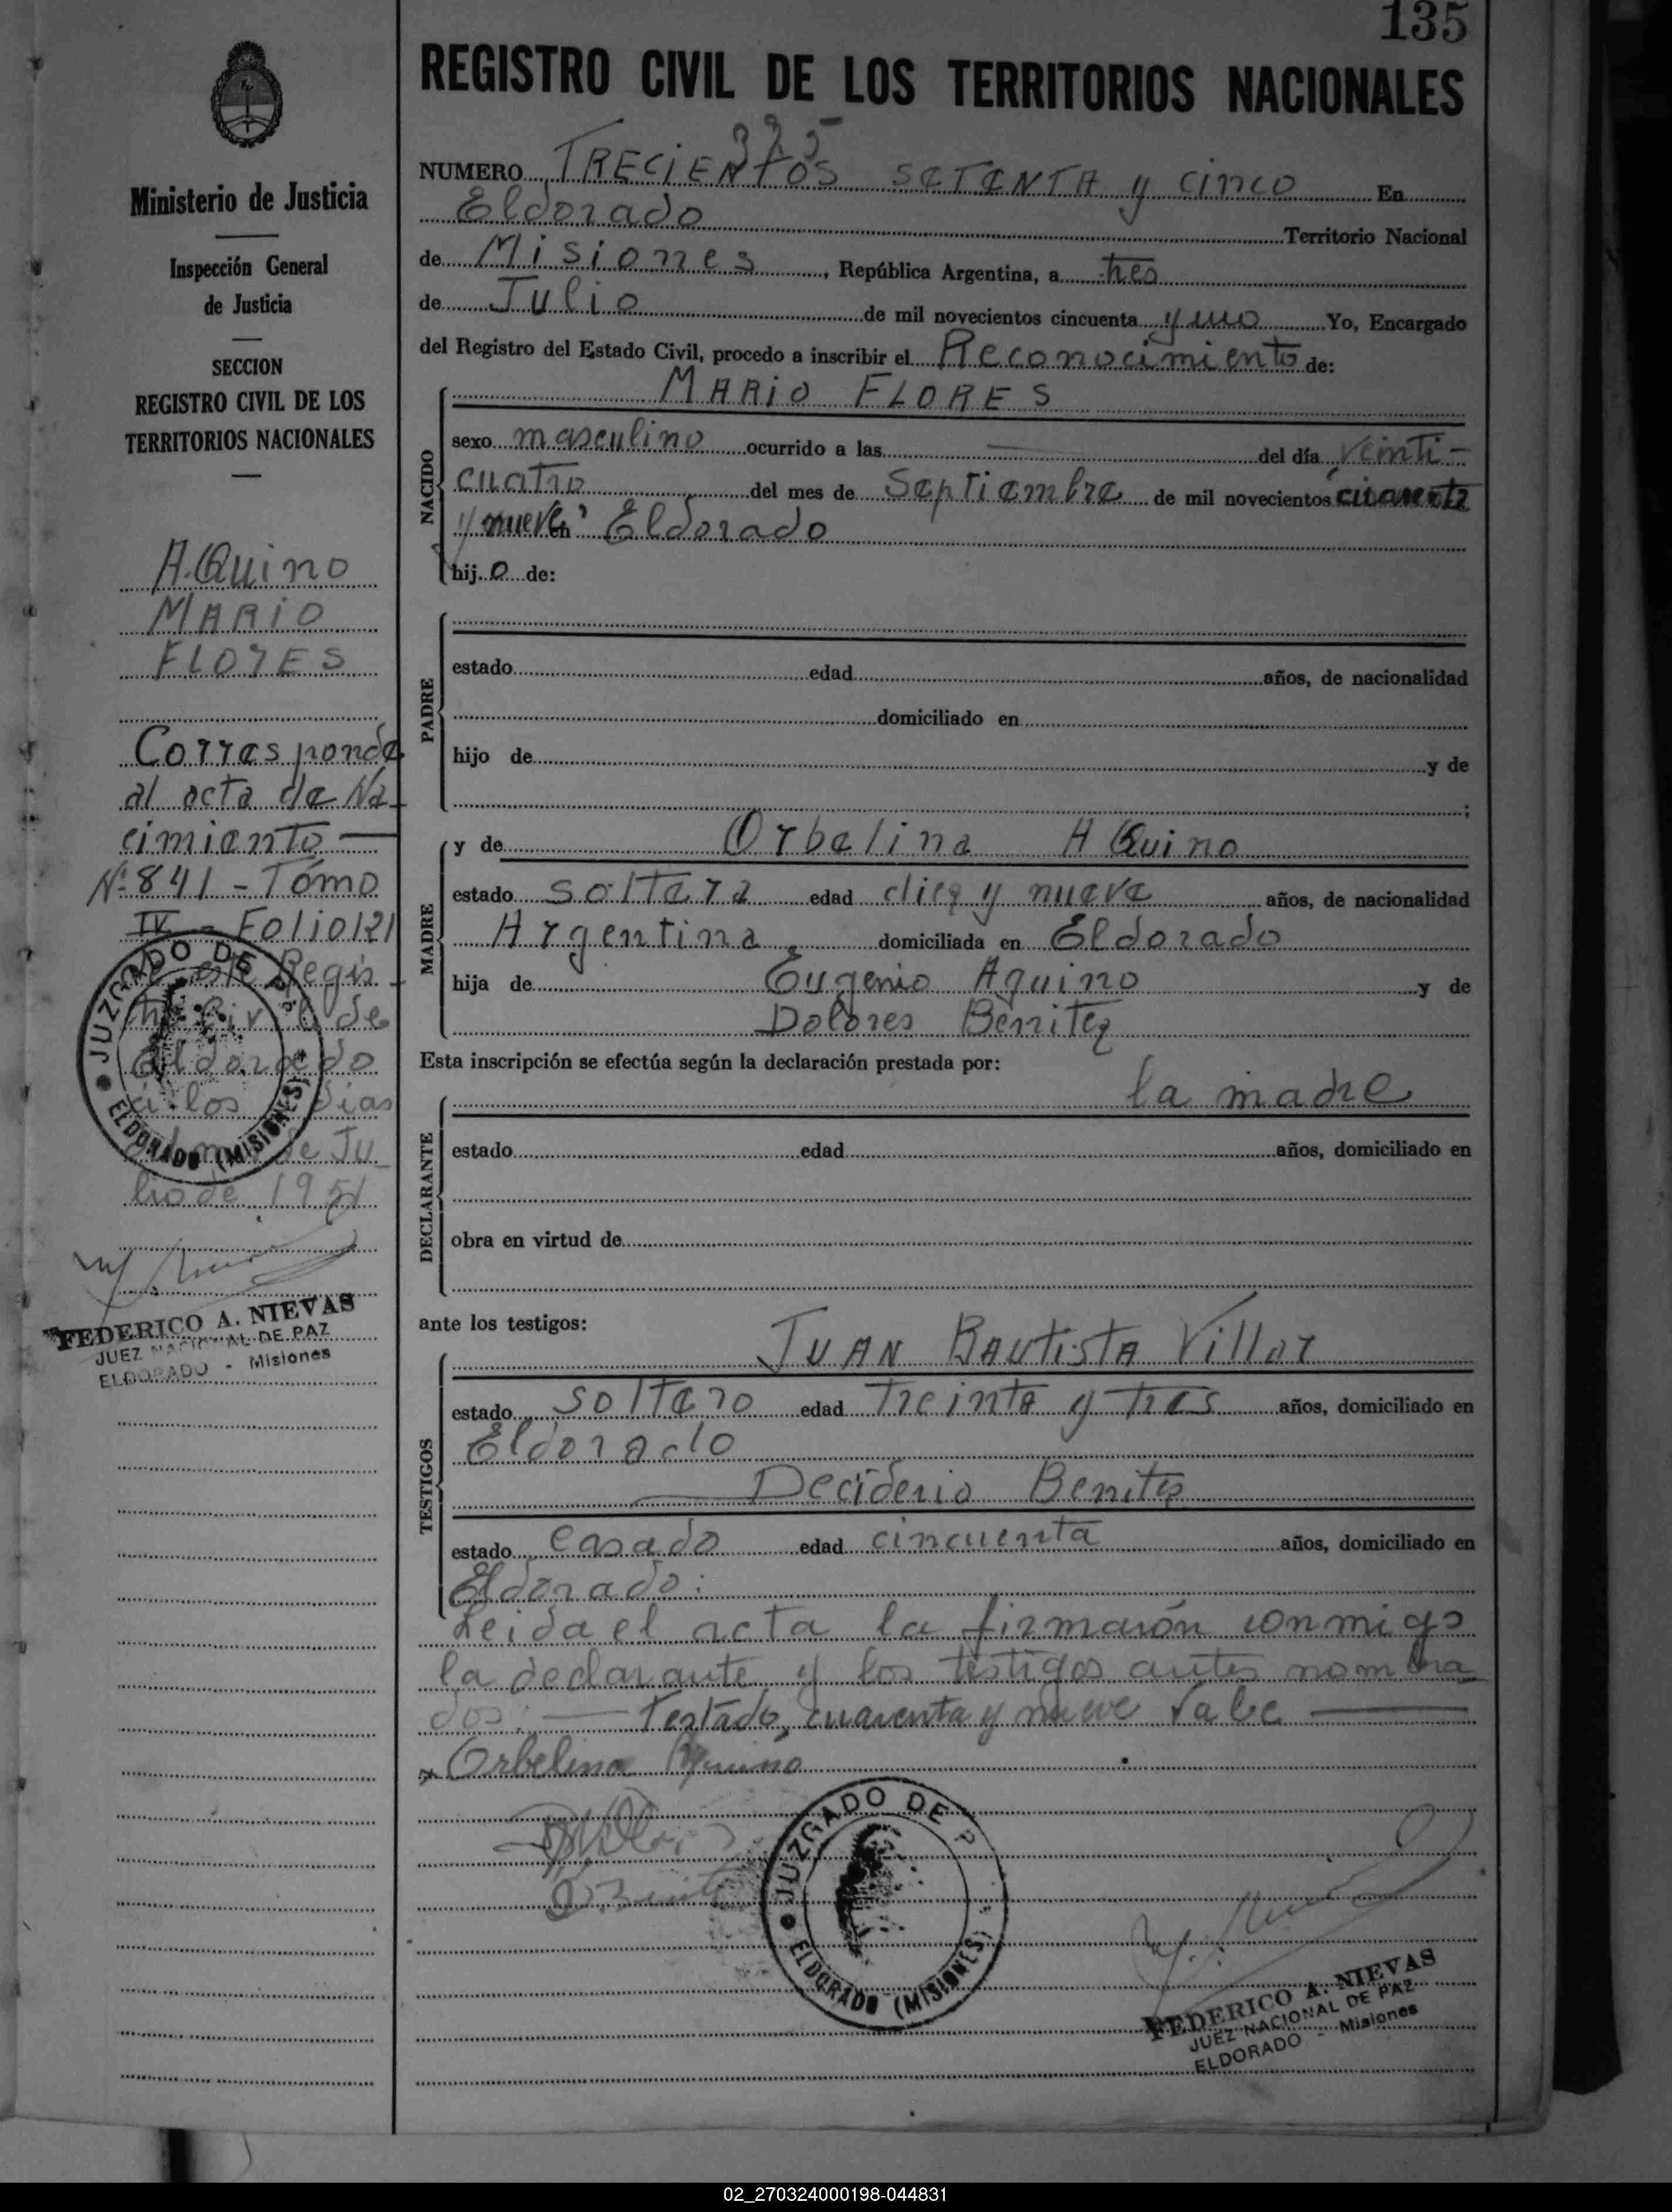 135
REGISTRO CIVIL DE LOS TERRITORIOS NACIONALES
375
NUMERO TRECIENTOS SETENTA y cinco En
Eldorado Territorio Nacional
de Misiones, República Argentina, a tres
de Julio de mil novecientos cincuenta y uno Yo, Encargado
del Registro del Estado Civil, procedo a inscribir el Reconocimiento de:
MARIO FLORES
NACIDO
sexo masculino ocurrido a las — del día veinti-
cuatro del mes de Septiembre de mil novecientos cuarenta
y nueve en Eldorado
hijo de:
PADRE
estado edad años, de nacionalidad
domiciliado en
hijo de y de
;
MADRE
y de Orbelina AQuino
estado soltera edad diez y nueve años, de nacionalidad
Argentina, domiciliada en Eldorado
hija de Eugenio Aquino y de
Dolores Benitez
Esta inscripción se efectúa según la declaración prestada por:
la madre
DECLARANTE
estado edad años, domiciliado en
obra en virtud de
ante los testigos:
TESTIGOS
JUAN BAUTISTA Villar
estado soltero edad treinta y tres años, domiciliado en
Eldorado
Deciderio Benitez
estado casado edad cincuenta años, domiciliado en
Eldorado:
Leida el acta la firmarón conmigo
la declarante y los testigos antes nombra
dos: — Testado, cuarenta y nueve Vale —
Orbelina Aquino
JUZGADO DE P
ELDORADO (MISIONES)
FEDERICO A. NIEVAS
JUEZ NACIONAL DE PAZ
ELDORADO - Misiones
Ministerio de Justicia
Inspección General
de Justicia
SECCION
REGISTRO CIVIL DE LOS
TERRITORIOS NACIONALES
A.Quino
MARIO
FLORES
Corresponde
al acta de Na-
cimiento —
Nº 841 - Tómo
IV - Folio 121
de este Regis-
tro Civil de
Eldorado
a los dias
de Ju-
lio de 1951
JUZGADO DE PA
ELDORADO (MISIONES)
FEDERICO A. NIEVAS
JUEZ NACIONAL DE PAZ
ELDORADO - Misiones
02_270324000198-044831